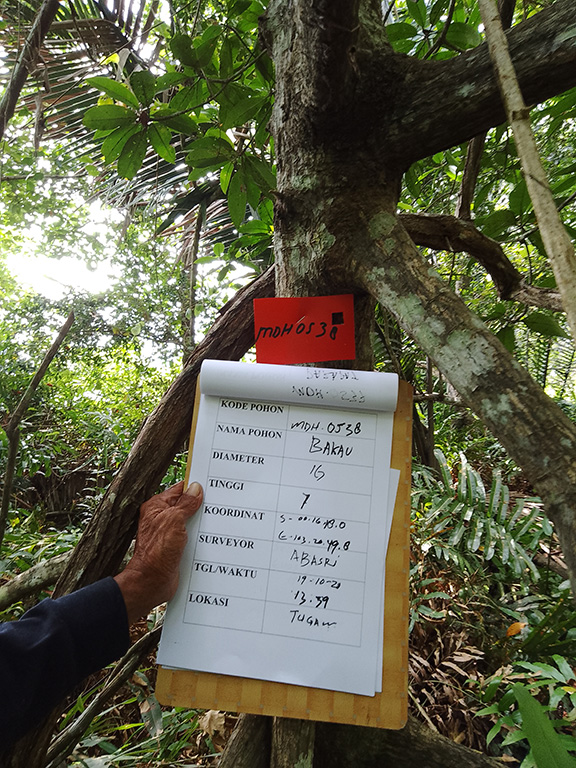 MDH 0538
KODE POHON MDH.0538
NAMA POHON BAKAU
DIAMETER 16
TINGGI 7
KOORDINAT S-00.16.43.0
E-103.20.49.8
SURVEYOR ABASRI
TGL/WAKTU 19-10-20
13.59
LOKASI TUGAW